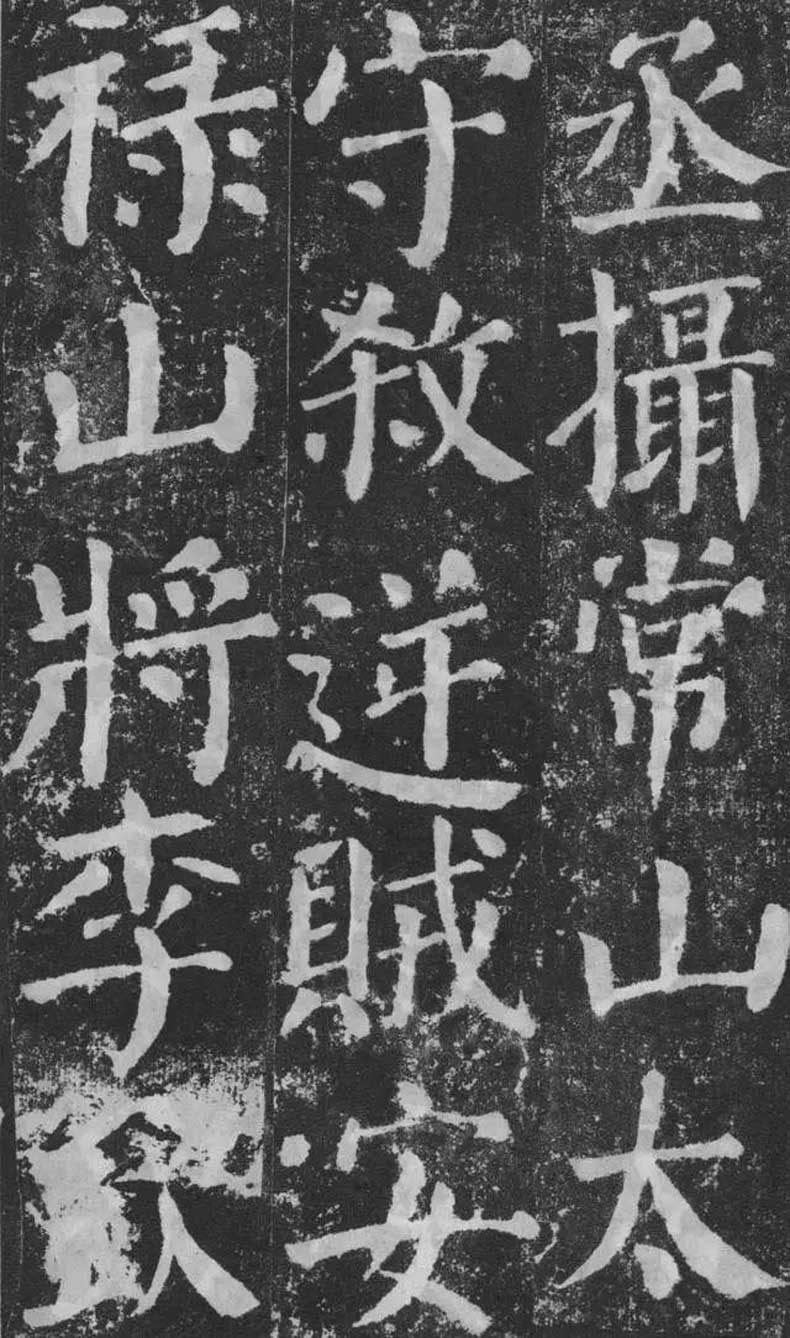 丞攝常山太
守殺逆賊安
祿山將李欽